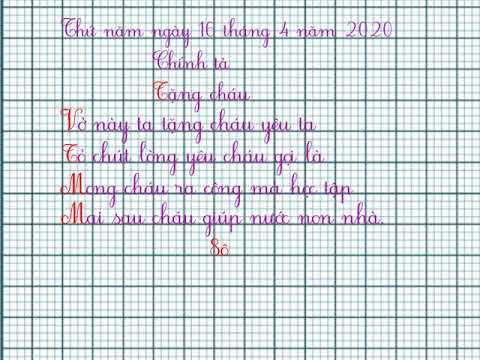 Thứ năm ngày 16 tháng 4 năm 2020
Chính tả
Tặng cháu
Vở này ta tặng cháu yêu ta
Tỏ chút lòng yêu cháu gọi là
Mong cháu ra công mà học tập
Mai sau cháu giúp nước non nhà.